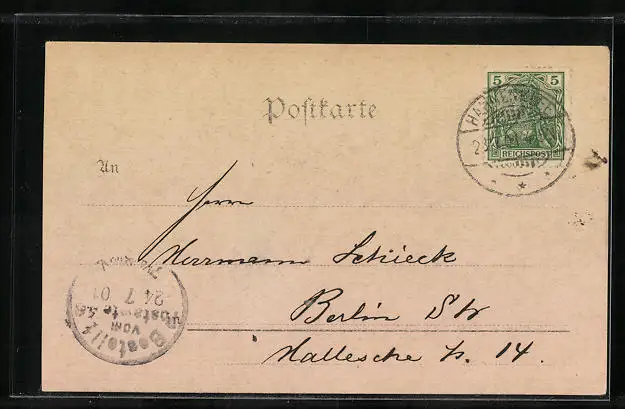 5 5
Postkarte
REICHSPOST
An
Herrn
Herrmann Schieck
24 7 01
Bestellt
vom
Postamte
Berlin SW
in
Hallesche 14.